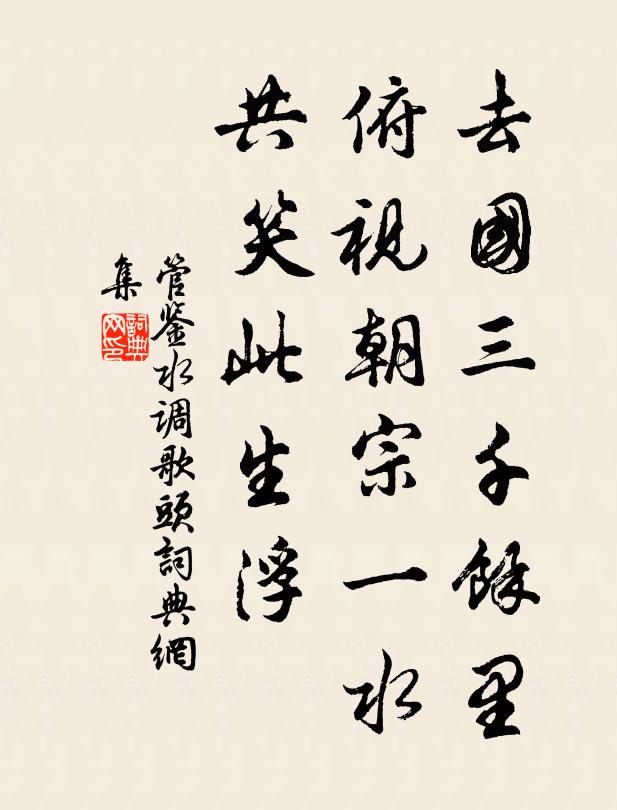 去國三千餘里
俯視朝宗一水
共笑此生浮
管鉴水调歌頭詞典網
集
詞典網印